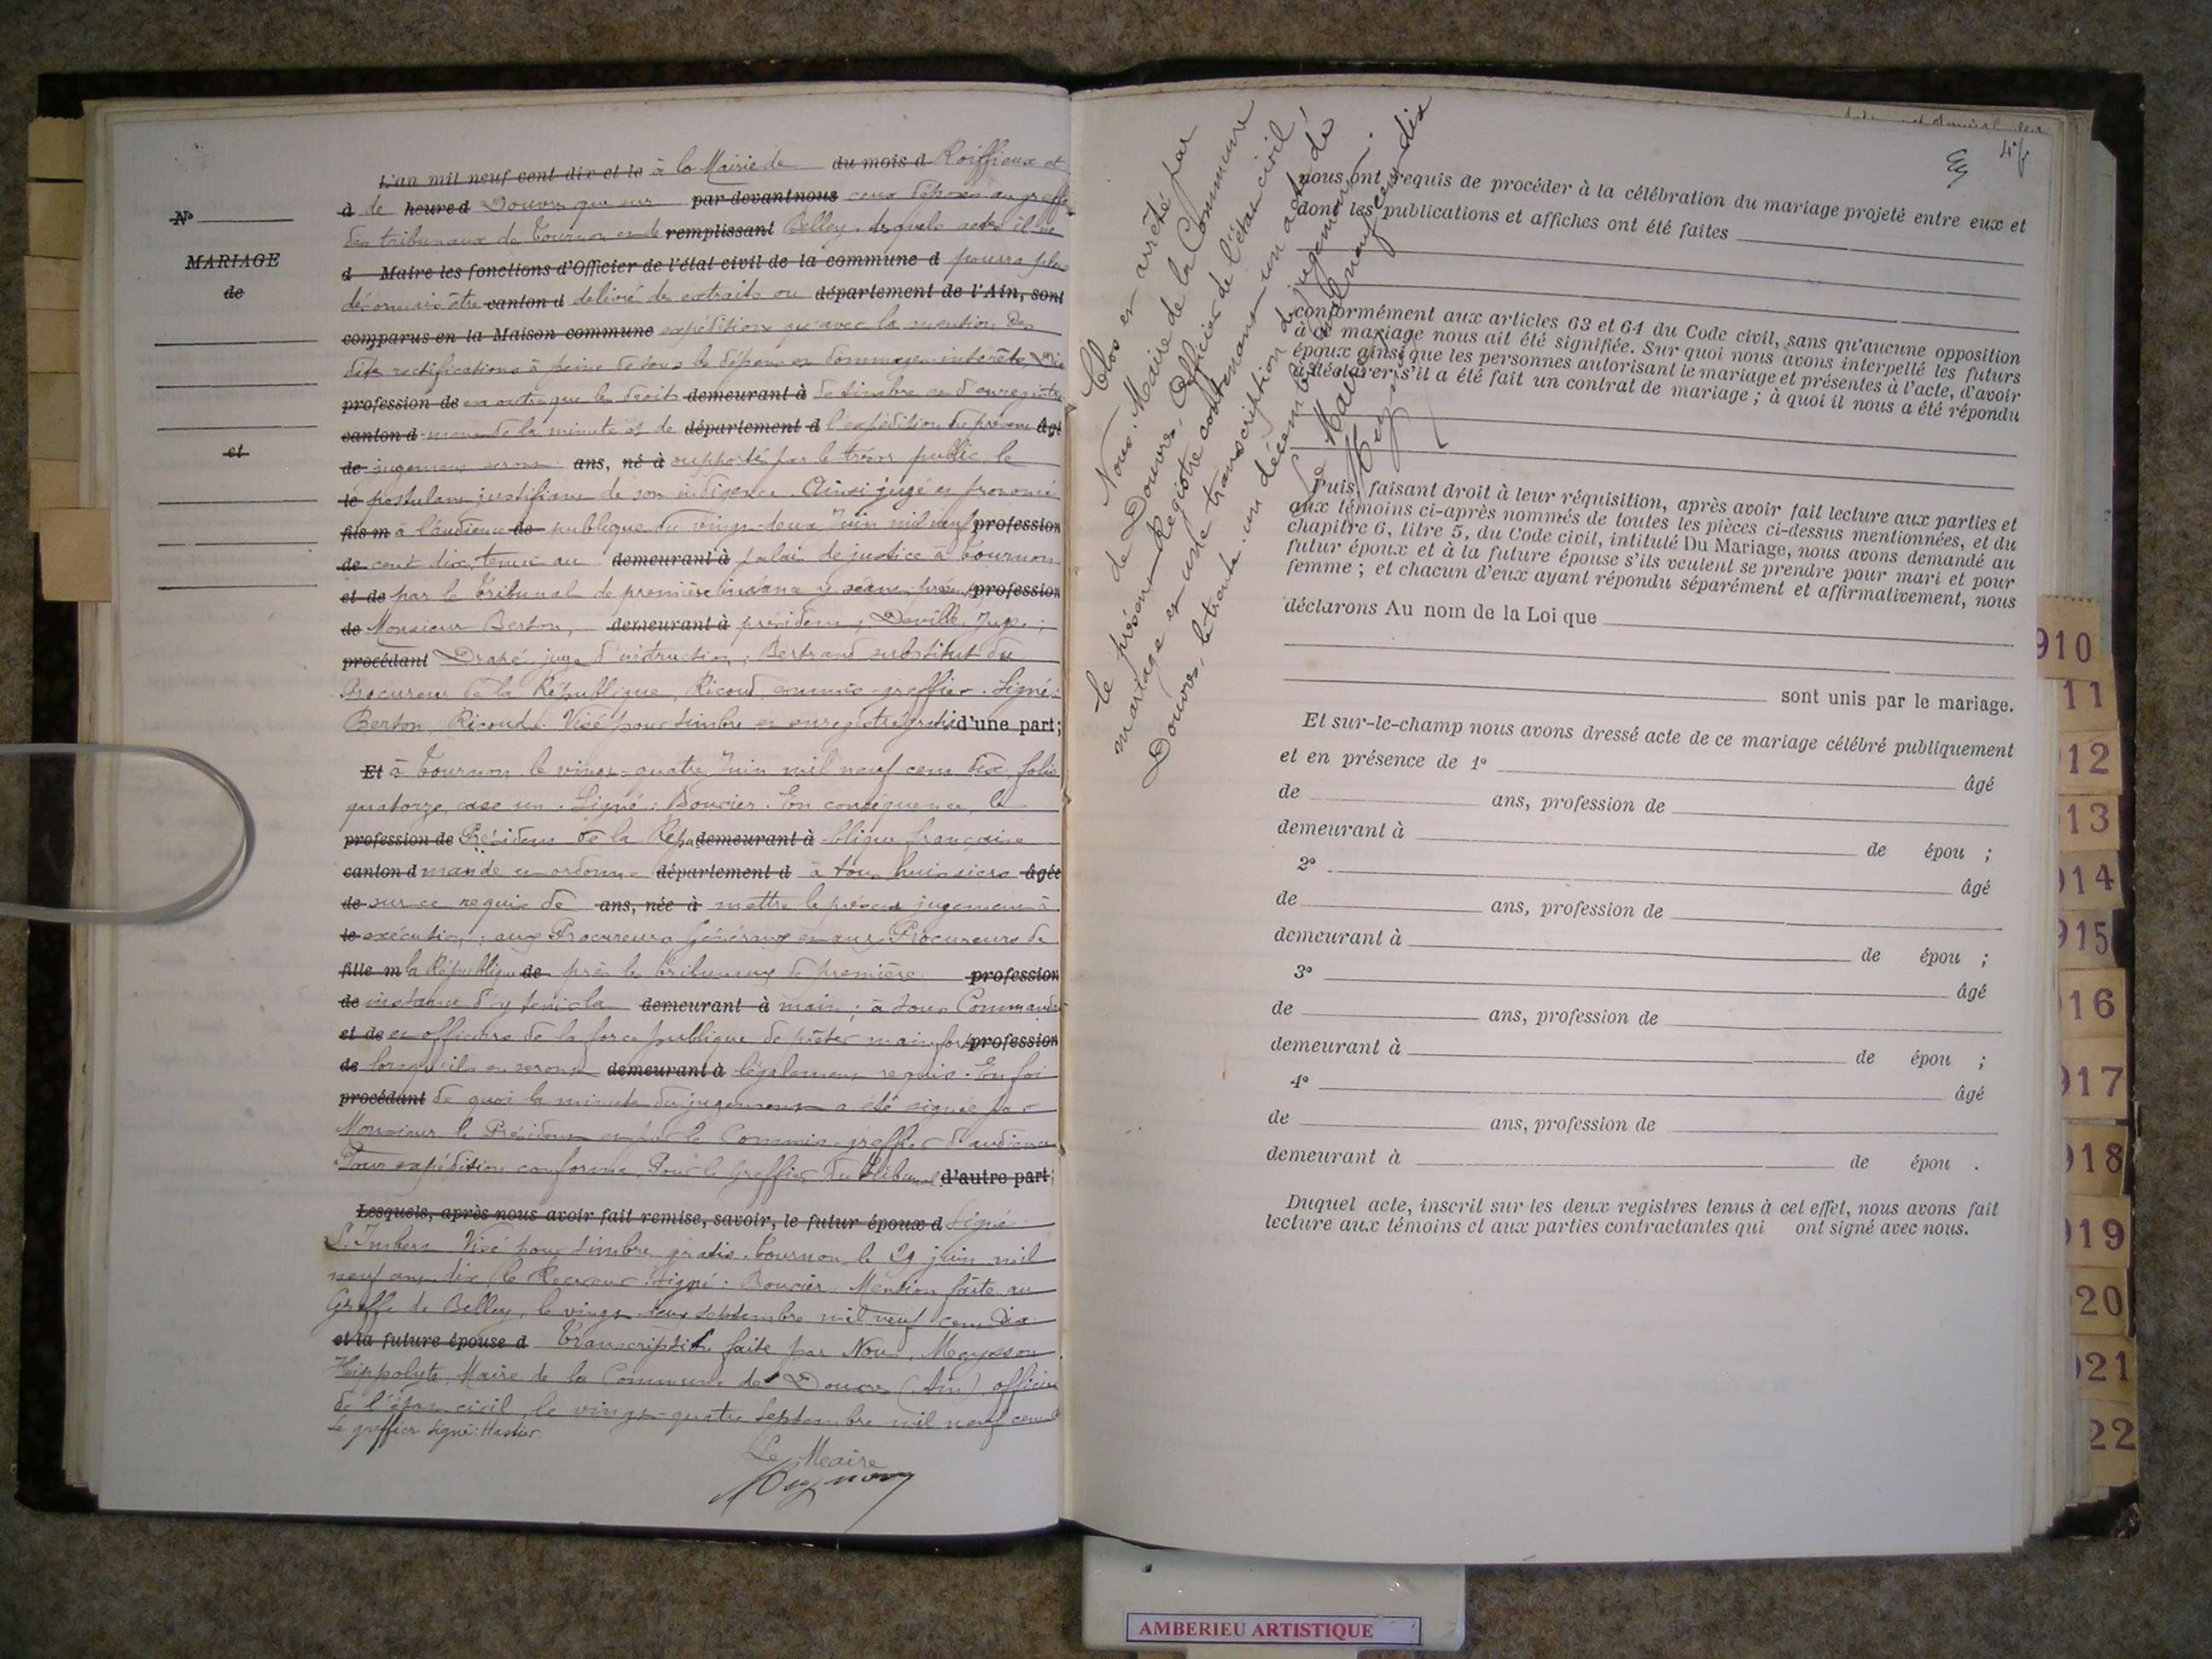 N°
MARIAGE
de
et
L'an mil neuf cent dix et le à la Mairie de du mois d Roiffieux et
à de heure d Douvres que sur par devant nous ceux déposés au greffe
des tribunaux de Tournon et de remplissant Belley, desquels actes il ne
d Maire les fonctions d'Officier de l'état civil de la commune d pourra plus
désormais être canton d délivré des extraits ou département de l'Ain, sont
comparus en la Maison commune expéditions qu'avec la mention des
dites rectifications à peine de tous les dépens et dommages-intérêts, Dit
profession de en outre que les droits demeurant à de timbre et d'enregistre
canton d -ment de la minute et de département d l'expédition du présent âgé
de jugement seront ans, né à supportés par le trésor public, le
le postulant justifiant de son indigence. Ainsi jugé et prononcé
fils m à l'audience de publique du vingt-deux Juin mil neuf profession
de cent dix, tenue au demeurant à palais de justice à Tournon
et de par le Tribunal de première instance y séant, profession
de Monsieur Berton, demeurant à président ; Deville, Juge ;
procédant juge d'instruction ; Bertrand substitut du
Procureur de la République, Ricoud commis-greffier. Signé :
Berton, Ricoud. Visé pour timbre et enregistré gratis d'une part;
Et à Tournon le vingt-quatre Juin mil neuf cent dix, folio
quatorze, case un. Signé : Boucier. En conséquence, le
profession de Président de la Répu demeurant à -blique française
canton d mande et ordonne département d à tous huissiers âgée
de sur ce requis de ans, née à mettre le présent jugement à
le exécution ; aux Procureurs Généraux et aux Procureurs de
fille m la République de près les tribunaux de première profession
de instance d'y tenir la demeurant à main ; à tous Commandts
et de et officiers de la force publique de prêter main forte profession
de lorsqu'ils en seront demeurant à légalement requis. En foi
procédant de quoi la minute du jugement a été signée par
Monsieur le Président et par le Commis-greffier d'audience
Pour expédition conforme, Pour le greffier du tribunal d'autre part;
Lesquels, après nous avoir fait remise, savoir, le futur époux d Signé :
Visé pour timbre gratis. Tournon, le 29 juin mil
neuf cent dix, le Receveur. Signé : Boucier. Mention faite au
Greffe de Belley, le vingt-deux Septembre mil neuf cent dix
et la future épouse d Transcription faite par Nous, Meysson
Hippolyte, Maire de la Commune de Douvres (Ain) officier
de l'état civil, le vingt-quatre Septembre mil neuf cent
Le greffier signé : Hastier.
Le Maire
Clos et arrêté par
Nous, Maire de la Commune
de Douvres, Officier de l'état civil,
le présent Registre contenant un acte de
mariage et une transcription de jugement.
Douvres, le trente-un décembre mil neuf cent dix
Le Maire
47
nous ont requis de procéder à la célébration du mariage projeté entre eux et
dont les publications et affiches ont été faites
conformément aux articles 63 et 64 du Code civil, sans qu'aucune opposition
à ce mariage nous ait été signifiée. Sur quoi nous avons interpellé les futurs
époux ainsi que les personnes autorisant le mariage et présentes à l'acte, d'avoir
à déclarer s'il a été fait un contrat de mariage ; à quoi il nous a été répondu
Puis, faisant droit à leur réquisition, après avoir fait lecture aux parties et
aux témoins ci-après nommés de toutes les pièces ci-dessus mentionnées, et du
chapitre 6, titre 5, du Code civil, intitulé Du Mariage, nous avons demandé au
futur époux et à la future épouse s'ils veulent se prendre pour mari et pour
femme ; et chacun d'eux ayant répondu séparément et affirmativement, nous
déclarons Au nom de la Loi que
sont unis par le mariage.
Et sur-le-champ nous avons dressé acte de ce mariage célébré publiquement
et en présence de 1° âgé
de ans, profession de
demeurant à de épou ;
2° âgé
de ans, profession de
demeurant à de épou ;
3° âgé
de ans, profession de
demeurant à de épou ;
4° âgé
de ans, profession de
demeurant à de épou .
Duquel acte, inscrit sur les deux registres tenus à cet effet, nous avons fait
lecture aux témoins et aux parties contractantes qui ont signé avec nous.
910
11
12
13
14
915
16
17
918
19
20
21
22
AMBERIEU ARTISTIQUE